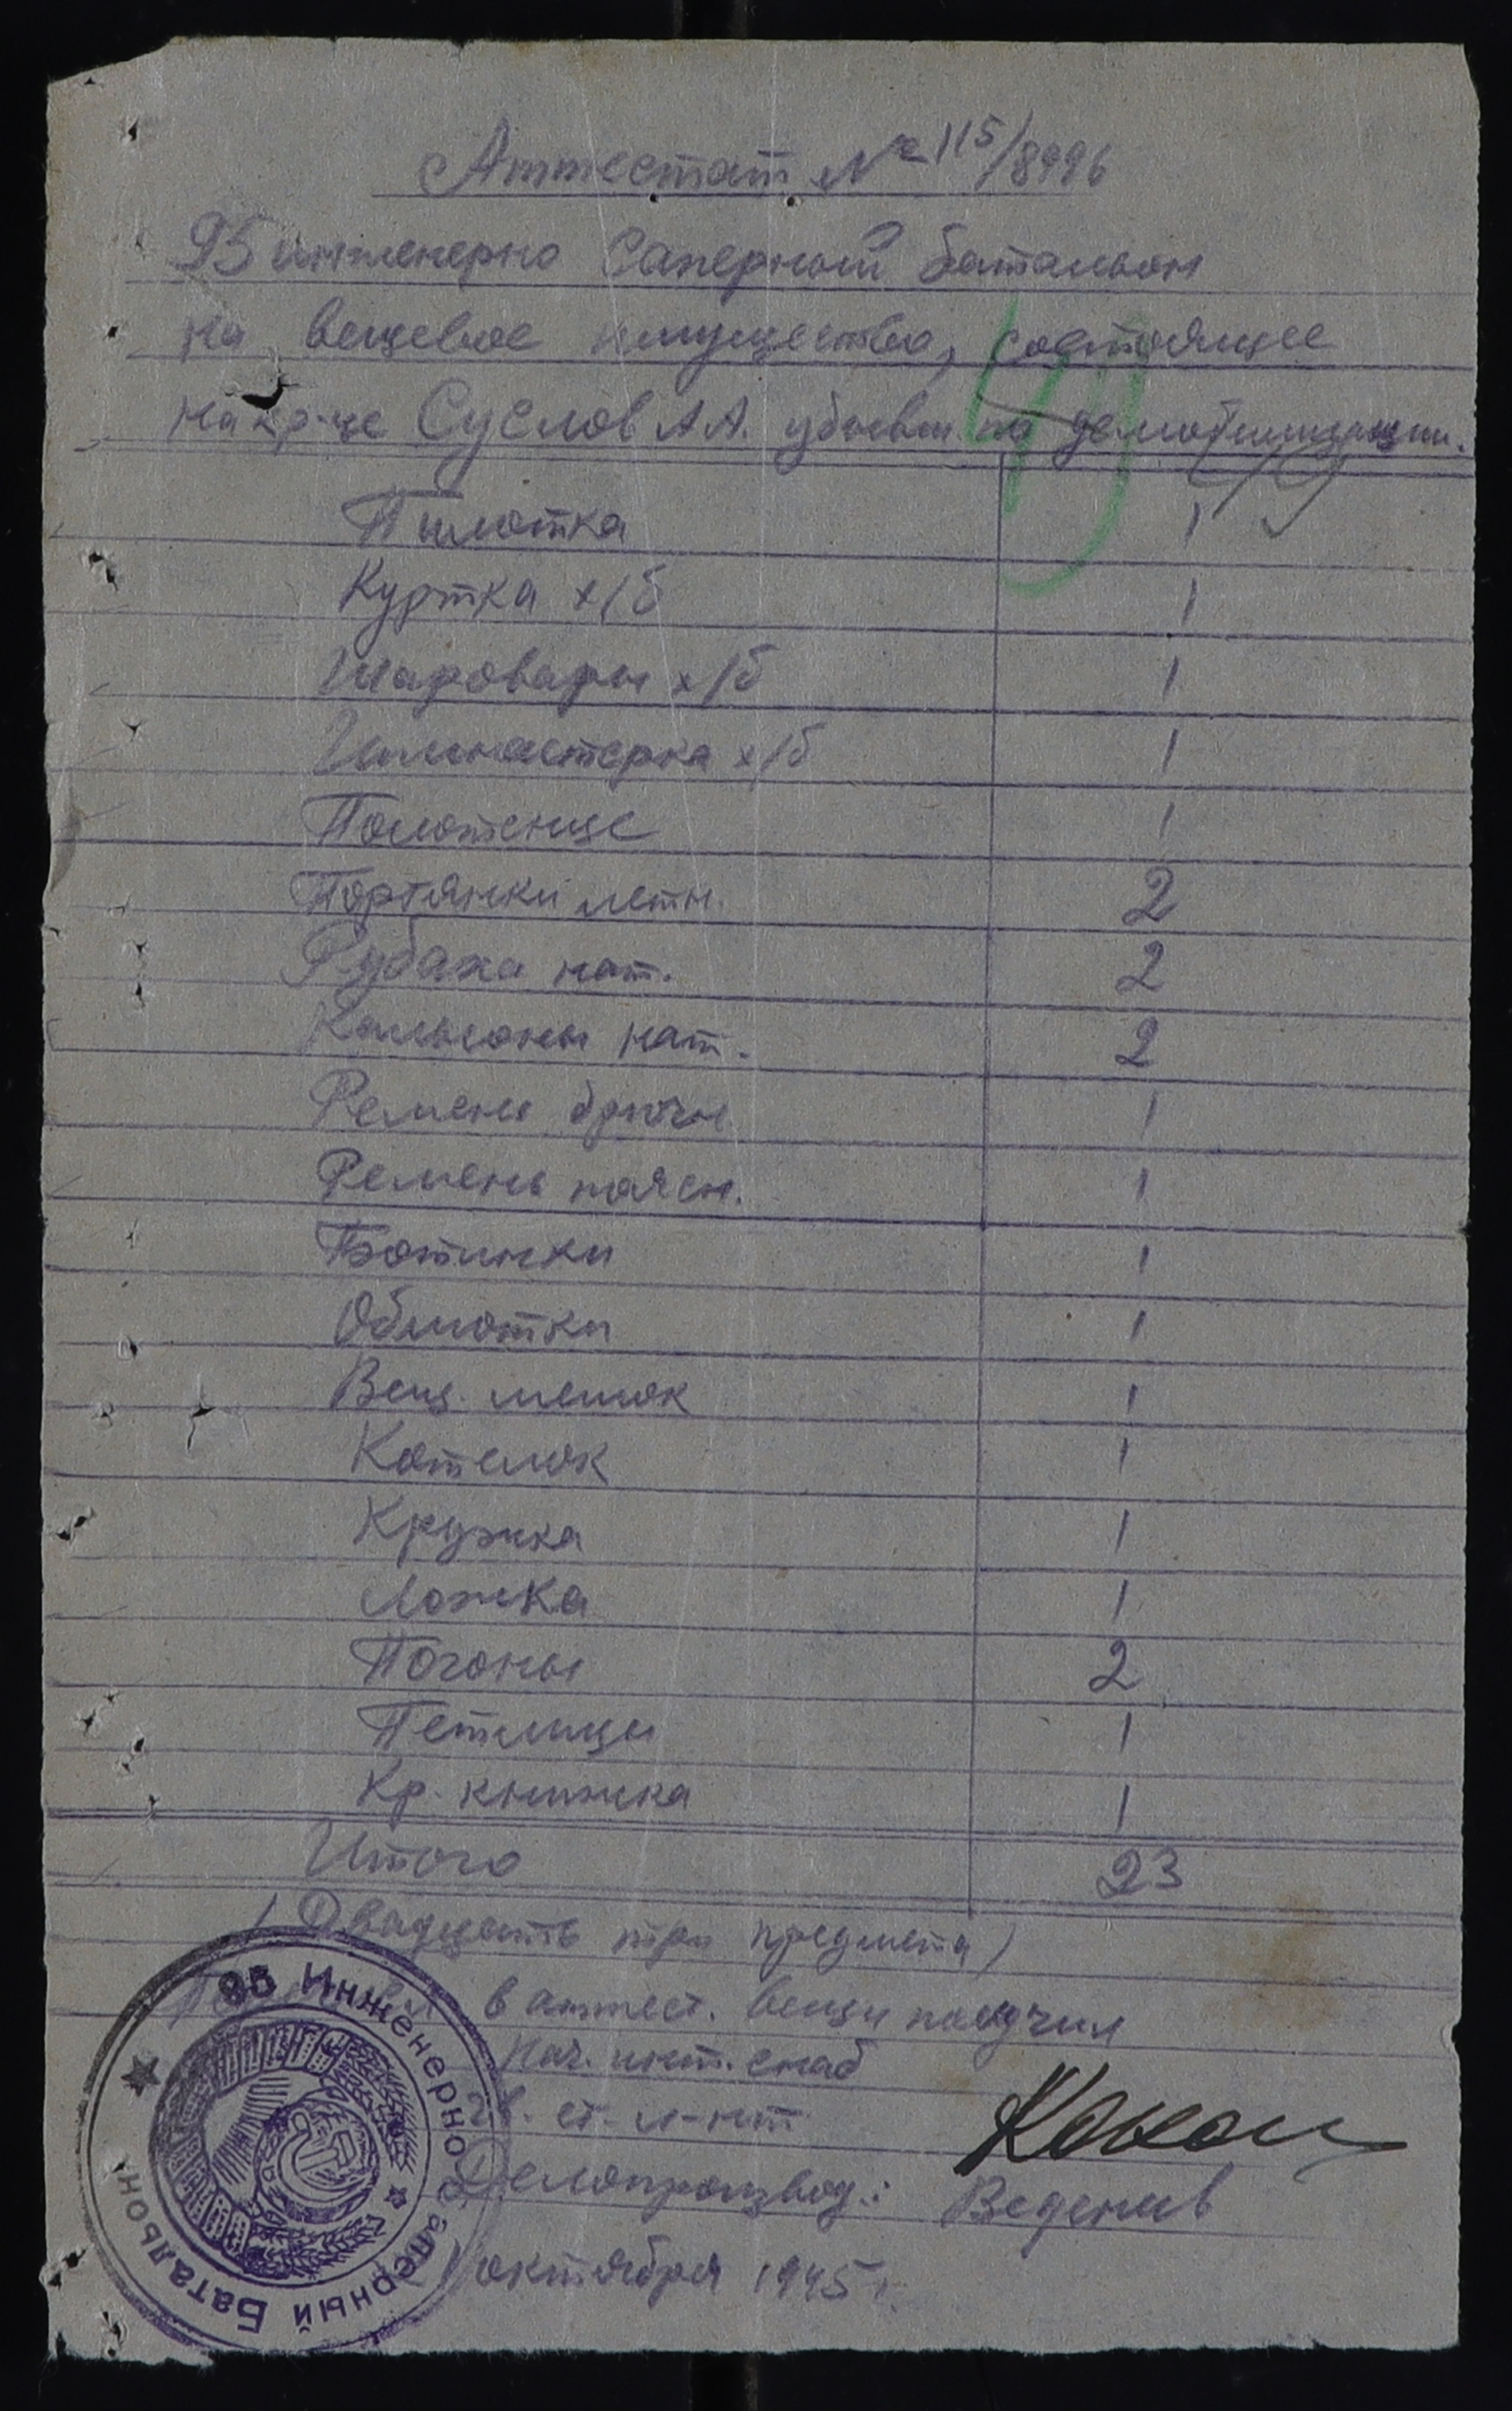 Аттестат № 115/8996
95 инженерно Саперный батальон
на вещевое имущество, состоящее
на кр-це Суслов А.А. убывш. по демобилизации.
Пилотка 1
Куртка х/б 1
Шаровары х/б 1
Гимнастерка х/б 1
Полотенце 1
Портянки летн. 2
Рубаха нат. 2
Кальсоны нат. 2
Ремень брючн. 1
Ремень поясн. 1
Ботинки 1
Обмотки 1
Вещ. мешок 1
Котелок 1
Кружка 1
Ложка 1
Погоны 2
Петлицы 1
Кр. книжка 1
Итого 23
(Двадцать три предмета)
в аттест. вещи получил
Нач. инт. снаб
Гв. ст. л-нт
Делопроизвод.:
октября 1945 г.
95 Инженерно Саперный Батальон